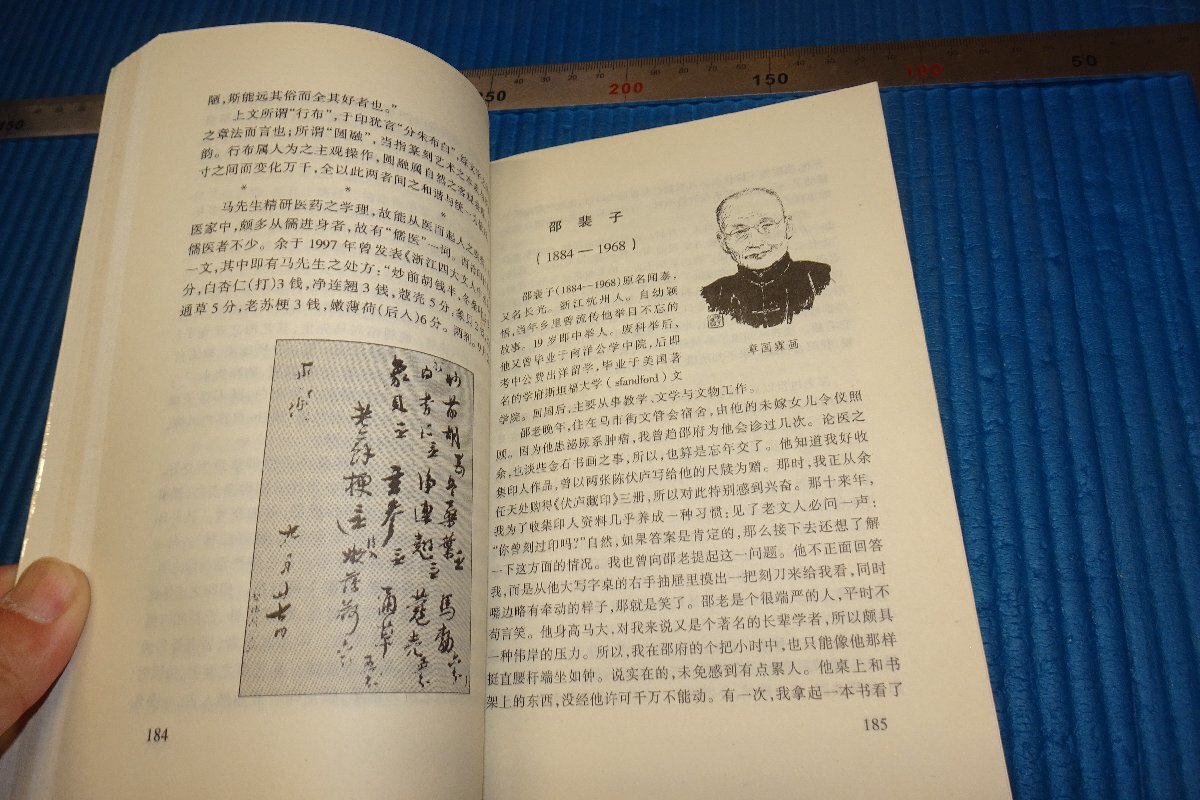 陋,斯能远其俗而全其好者也。”
上文所谓“行布”,于印犹言“分朱布白”,
之章法而言也;所谓“圆融”,当指篆刻艺术之
韵。行布属人为之主观操作,圆融属自然之客观
寸之间而变化万千,全以此两者间之和谐与统一
* * *
马先生精研医药之学理,故能从医而起人之
医家中,颇多从儒进身者,故有“儒医”一词。
儒医者不少。余于1997年曾发表《浙江四大文人
一文,其中即有马先生之处方:“炒前胡钱半,冬桑
分,白杏仁(打)3钱,净连翘3钱,蔻壳5分,象贝2
通草5分,老苏梗3钱,嫩薄荷(后入)6分。两剂。
184
邵 裴 子
(1884—1968)
章国霖画
邵裴子(1884—1968)原名闻泰,
又名长光。浙江杭州人。自幼颖
悟,当年乡里曾流传他举目不忘的
故事。19岁即中举人。废科举后,
他又曾毕业于南洋公学中院,后即
考中公费出洋留学,毕业于美国著
名的学府斯坦福大学(sfandford)文
学院。回国后,主要从事教学、文学与文物工作。
邵老晚年,住在马市街文管会宿舍,由他的未嫁女儿令仪照
顾。因为他患泌尿系肿瘤,我曾趋邵府为他会诊过几次。论医之
余,也谈些金石书画之事,所以,也算是忘年交了。他知道我好收
集印人作品,曾以两张陈伏庐写给他的尺牍为赠。那时,我正从余
任天处购得《伏庐藏印》三册,所以对此特别感到兴奋。那十来年,
我为了收集印人资料几乎养成一种习惯;见了老文人必问一声:
“你曾刻过印吗?”自然,如果答案是肯定的,那么接下去还想了解
一下这方面的情况。我也曾向邵老提起这一问题。他不正面回答
我,而是从他大写字桌的右手抽屉里摸出一把刻刀来给我看,同时
嘴边略有牵动的样子,那就是笑了。邵老是个很端严的人,平时不
苟言笑。他身高马大,对我来说又是个著名的长辈学者,所以颇具
一种伟岸的压力。所以,我在邵府的个把小时中,也只能像他那样
挺直腰杆端坐如钟。说实在的,未免感到有点累人。他桌上和书
架上的东西,没经他许可千万不能动。有一次,我拿起一本书看了
185
250
200
150
100
50